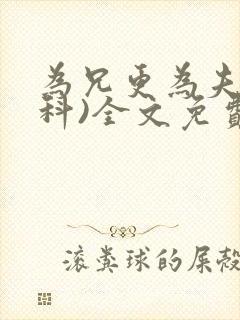 為兄更為夫
科)全文免費
滚粪球的屎殼